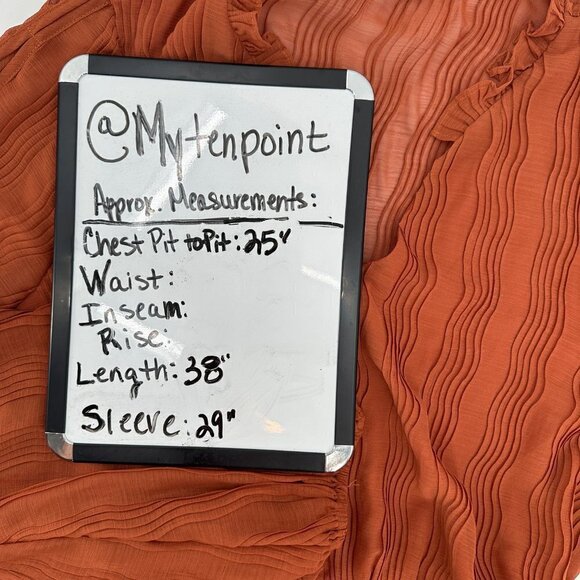 @Mytenpoint
Approx. Measurements:
Chest Pit to Pit: 25"
Waist:
Inseam:
Rise:
Length: 38"
Sleeve: 29"